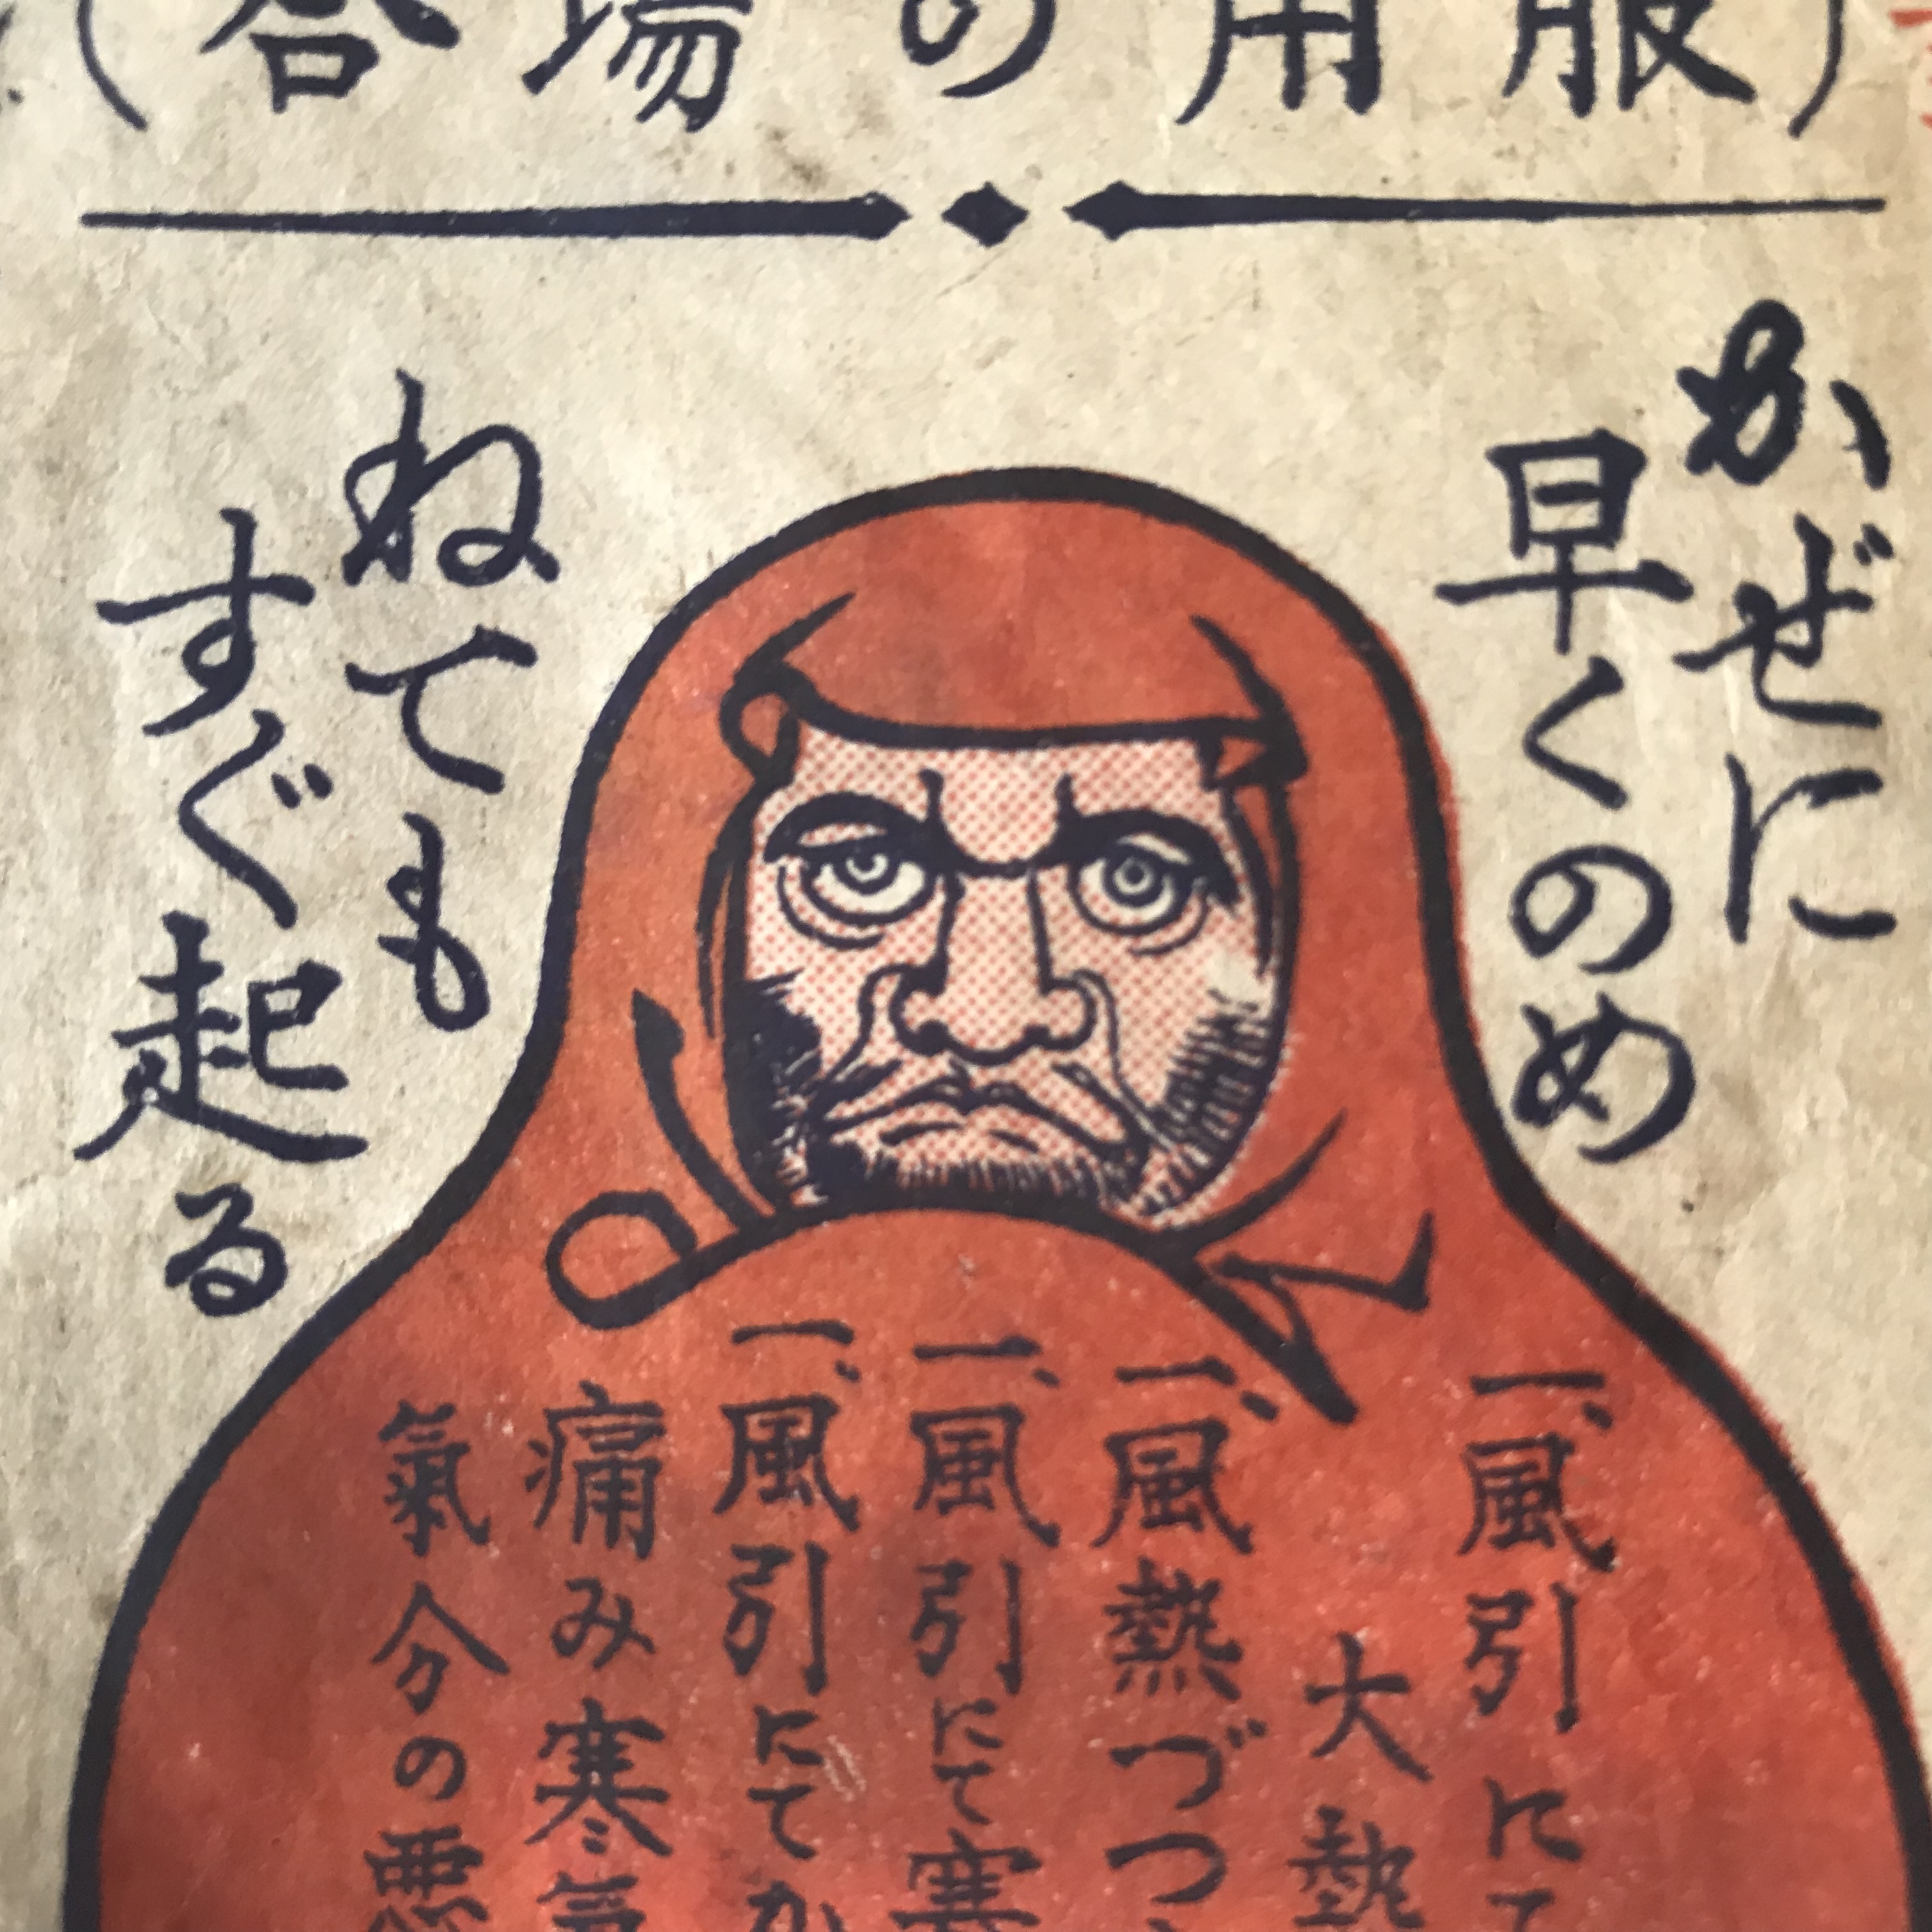 (服用の場合)
かぜに
早くのめ
ねても
すぐ起る
一、風引にて
大熱
一、風熱づつ
一、風引にて寒
一、風引にてか
痛み寒氣
氣分の悪